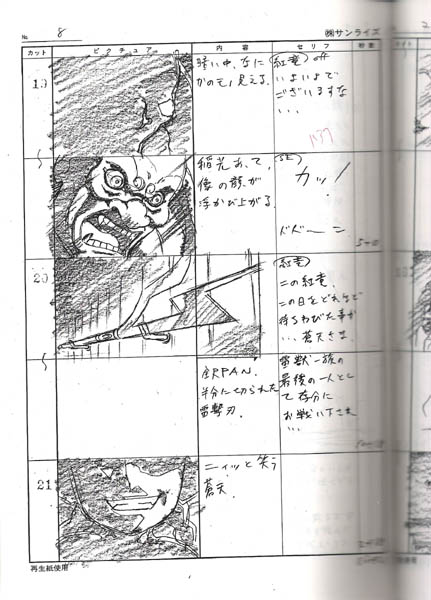 No. 8
㈱サンライズ
カット
ピクチュア
内容
セリフ
秒数
19
暗い中、なに
かのモノ見える。
(紅竜) off
いよいよで
ございますな
・・・
稲光あって、
像の顔が
浮かび上がる。
(SE)
カッ!
ドドーーン
5+0
20
(紅竜)
この紅竜、
この日をどれほど
待ちわびた事か
・・・蒼天さま
全RPAN.
半分に切られた
雷撃刃.
雷獣一族の
最後の一人とし
て存分に
お戦い下さい
・・・
21
ニィッと笑う
蒼天.
再生紙使用